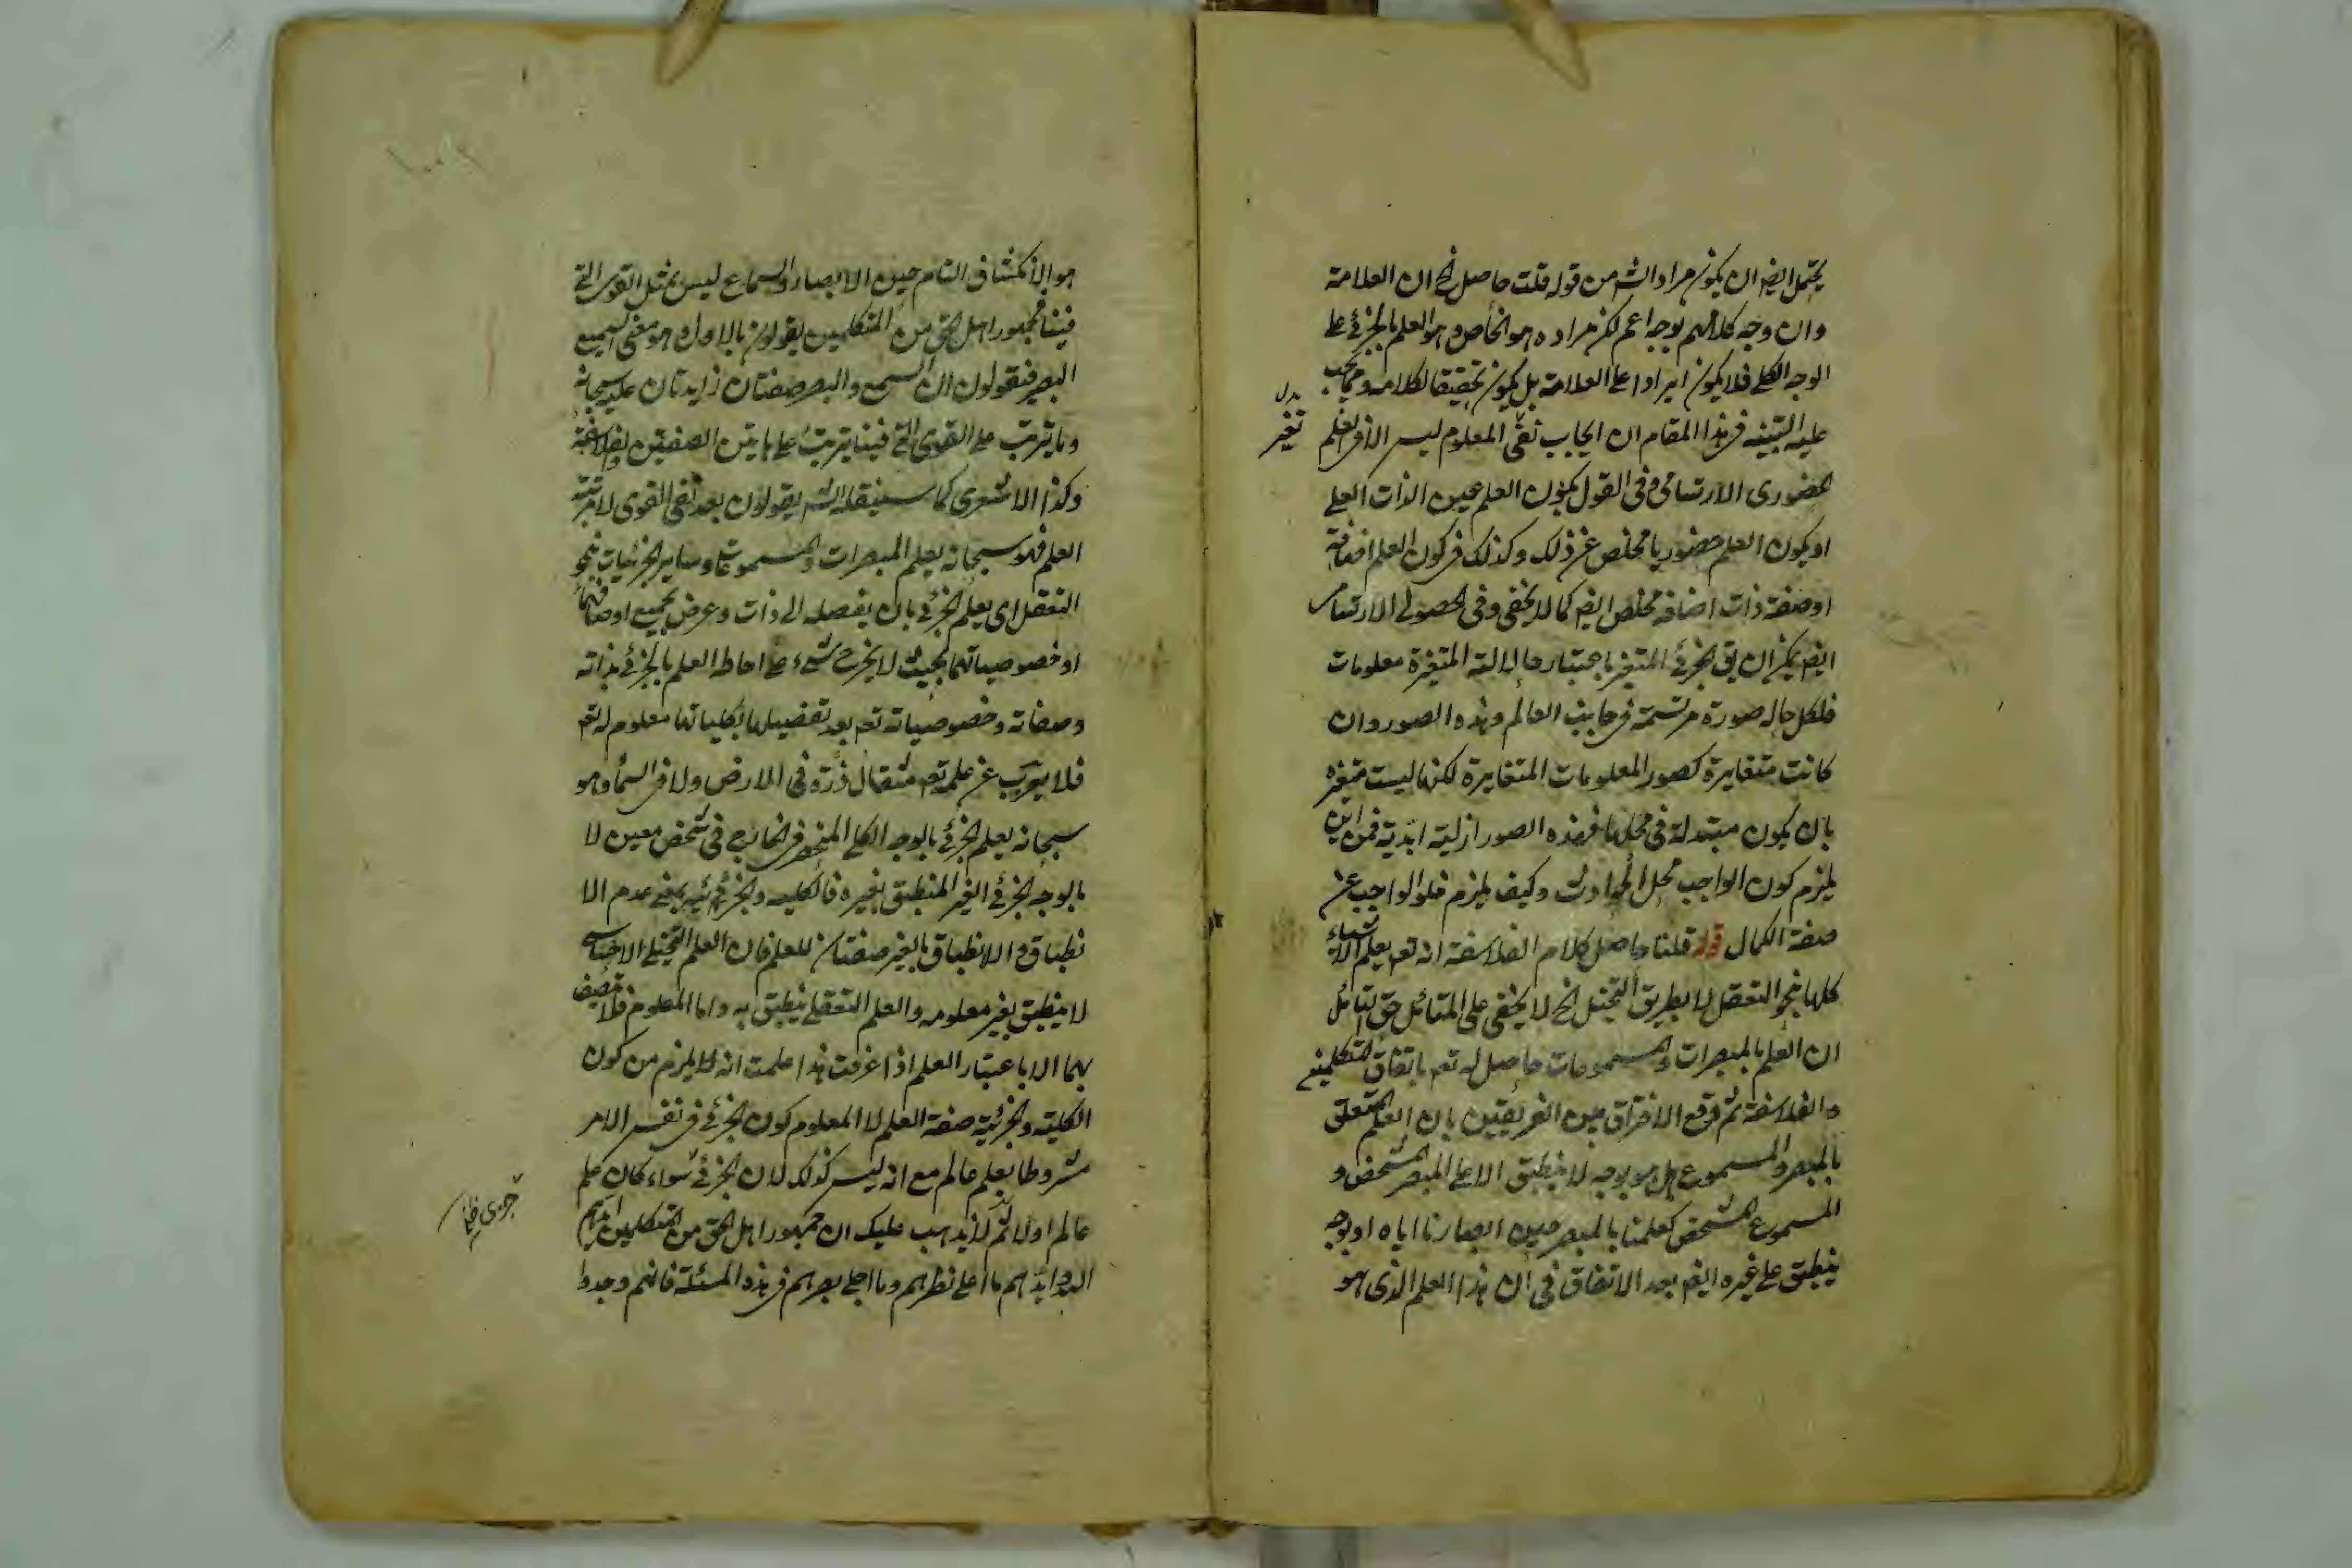 يحتمل ايضا ان يكون مراد الش من قوله قلت حاصل الخ ان العلامة
وان وجه كلامهم بوجه اعم لكن مراده هو الخاص وهو العلم بالجزئي على
الوجه الكلي فلا يكون ايرادا على العلامة بل يكون تحقيقا لكلامه ومما يجب
عليه التنبيه في هذا المقام ان ايجاب المعلوم ليس الا في العلم
تغير
الحضوري الارتسامي وفي القول بكون العلم عين الذات العلي
او يكون العلم حضوريا مخلص عن ذلك وكذلك في كون العلم اضافة
او صفة ذات اضافة مخلص ايضا كما لا يخفى وفي الحصولي الارتسامي
ايضا يمكن ان يق الجزئي المتغير باعتبار حالاته المتغيرة معلومات
فلكل حاله صورة مرتسمة في جانب العالم وهذه الصور وان
كانت متغايرة كصور المعلومات المتغايرة لكنها ليست متغيره
بان يكون متبدلة في محلها فهذه الصور ازلية ابدية فمن اين
يلزم كون الواجب محل الحوادث وكيف يلزم خلو الواجب عن
صفة الكمال قوله قلنا حاصل كلام الفلاسفة انه تعم يعلم الاشياء
كلها بنحو التعقل لا بطريق التخيل الخ لا يخفى على المتأمل حق التأمل
ان العلم بالمبصرات والمسموعات حاصل له تعم باتفاق المتكلمين
والفلاسفة ثم وقع الافتراق بين الفريقين بان العلم المتعلق
بالمبصر والمسموع هل هو بوجه لا ينطبق الا على المبصر المشخص و
المسموع المشخص كعلمنا بالمبصر حين ابصارنا اياه او بوجه
ينطبق على غيره ايضا بعد الاتفاق في ان هذا العلم الذي هو
هو الانكشاف التام حين الابصار والسماع ليس بمثل القوى التي
فينا فجمهور اهل الحق من المتكلمين يقولون بالاول وهو معنى السميع
البصير فيقولون ان السمع والبصر صفتان زايدتان عليه سبحانه
وما يترتب على القوى التي فينا يترتب على هاتين الصفتين والفلاسفة
وكذا الاشعري كما سينقله الش يقولون بعد نفي القوى لا مرتبة
العلم فهو سبحانه يعلم المبصرات والمسموعات وساير الجزئيات بنحو
التعقل اي يعلم الجزئي بان يفصله الى ذات وعرض بجميع اوصافهما
او خصوصياتهما بحيث لا يخرج شيء عما احاط العلم بالجزئي بذاته
وصفاته وخصوصياته تعم بعد تفصيلها بكلياتها معلوم له تعم
فلا يعزب عن علمه تعم مثقال ذرة في الارض ولا في السماء وهو
سبحانه يعلم الجزئي بالوجه الكلي المنحصر في الخارج في شخص معين لا
بالوجه الجزئي الغير المنطبق بغيره فالكليه والجزئيه بمعنى عدم الا
نطباق والانطباق بالغير صفتان للعلم فان العلم التخيلي الاحساسي
لا ينطبق بغير معلومه والعلم التعقلي ينطبق به واما المعلوم فلا تتصف
بهما الا باعتبار العلم اذا عرفت هذا علمت انه لا يلزم من كون
الكلية والجزئية صفة العلم لا المعلوم كون الجزئي في نفس الامر
مشروطا بعلم عالم مع انه ليس كذلك لان الجزئي سواء كان علم
عالم اولا ثم لا يذهب عليك ان جمهور اهل الحق من المتكلمين
ما اعلى نظرهم وما اجلى بصرهم في هذه المسئلة فانهم وجدوا